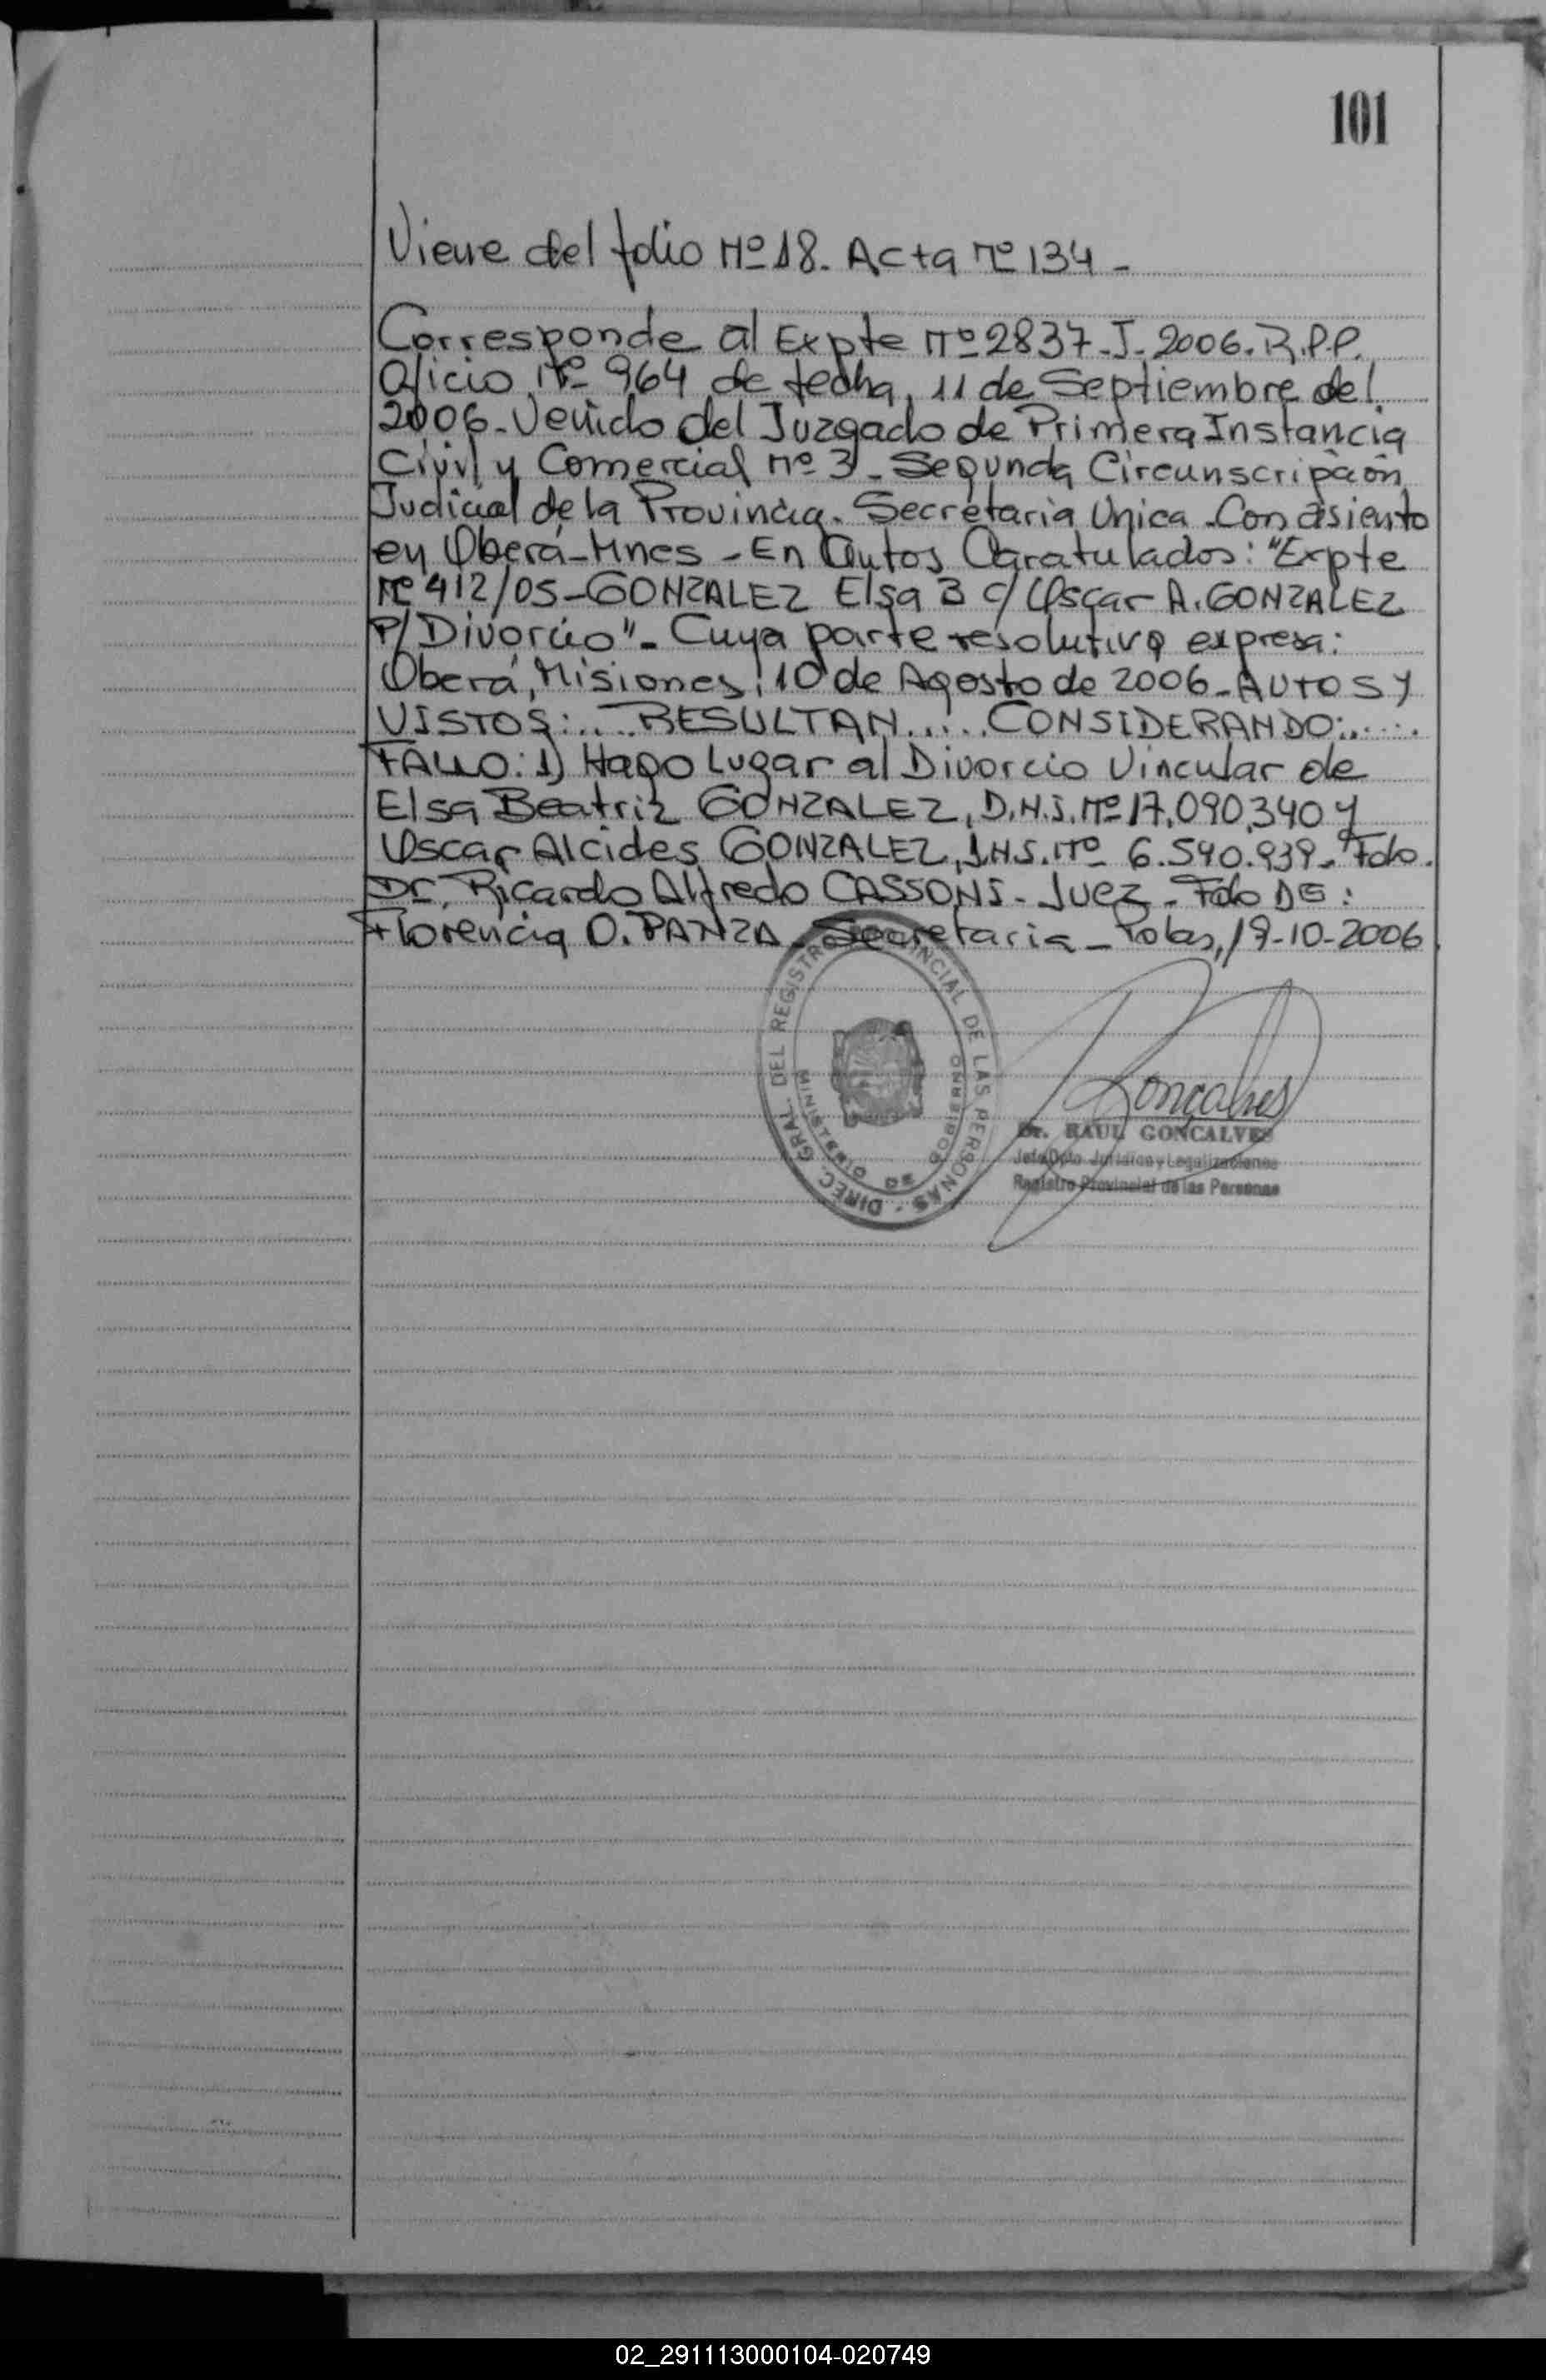 101
Viene del folio Nº 18. Acta nº 134 -
Corresponde al Expte Nº 2837-J-2006. R.P.P.
Oficio Nº 964 de fecha, 11 de Septiembre del
2006-Venido del Juzgado de Primera Instancia
Civil y Comercial nº 3 - Segunda Circunscripción
Judicial de la Provincia. Secretaria Unica - Con asiento
en Oberá-Mnes - En Autos Caratulados: "Expte
Nº 412/05-GONZALEZ Elsa B c/ Oscar A. GONZALEZ
P/ Divorcio" - Cuya parte resolutiva expresa:
Oberá, Misiones, 10 de Agosto de 2006-AUTOS Y
VISTOS:... RESULTAN..... CONSIDERANDO:.....
FALLO: 1) Hago Lugar al Divorcio Vincular de
Elsa Beatriz GONZALEZ, D.N.I. Nº 17.090.340 y
Oscar Alcides GONZALEZ, D.N.I. Nº 6.540.939 - Fdo.
Dr. Ricardo Alfredo CASSONI - Juez - Fdo Dra:
Florencia O. PANZA - Secretaria - Pdas, 19-10-2006
DIREC. GRAL. DEL REGISTRO PROVINCIAL DE LAS PERSONAS -
MINISTERIO DE GOBIERNO
Goncalves
Dr. RAUL GONCALVES
Jefe Dpto. Jurídico y Legalizaciones
Registro Provincial de las Personas
02_291113000104-020749